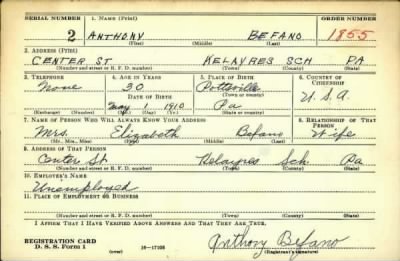 SERIAL NUMBER 1. NAME (Print) ORDER NUMBER
2 ANTHONY BEFANO 1855
(First) (Middle) (Last)
2. ADDRESS (Print)
CENTER ST KELAYRES SCH PA
(Number and street or R. F. D. number) (Town) (County) (State)
3. TELEPHONE 4. AGE IN YEARS 5. PLACE OF BIRTH 6. COUNTRY OF CITIZENSHIP
None 30 Pottsville
DATE OF BIRTH (Town or county)
May 1 1910 Pa U.S.A.
(Exchange) (Number) (Mo.) (Day) (Yr.) (State or country)
7. NAME OF PERSON WHO WILL ALWAYS KNOW YOUR ADDRESS 8. RELATIONSHIP OF THAT PERSON
Mrs. Elizabeth Befano Wife
(Mr., Mrs., Miss) (First) (Middle) (Last)
9. ADDRESS OF THAT PERSON
Center St Kelayres Sch Pa
(Number and street or R. F. D. number) (Town) (County) (State)
10. EMPLOYER'S NAME
Unemployed
11. PLACE OF EMPLOYMENT OR BUSINESS
(Number and street or R. F. D. number) (Town) (County) (State)
I AFFIRM THAT I HAVE VERIFIED ABOVE ANSWERS AND THAT THEY ARE TRUE.
REGISTRATION CARD
D. S. S. Form 1 (over) 16-17105 Anthony Befano
(Registrant's signature)